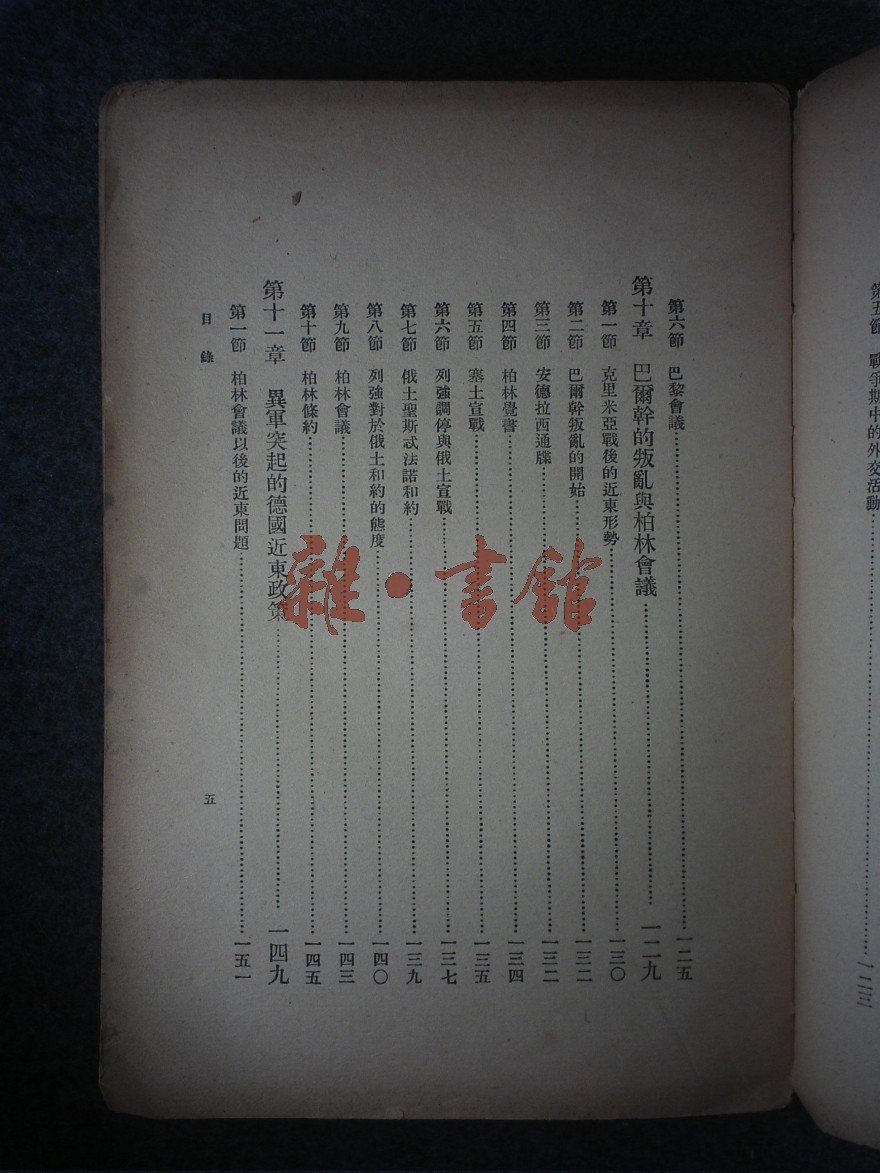 第五節 戰爭期中的外交活動……一二三
第六節 巴黎會議……一二五
第十章 巴爾幹的叛亂與柏林會議……一二九
第一節 克里米亞戰後的近東形勢……一三〇
第二節 巴爾幹叛亂的開始……一三二
第三節 安德拉西通牒……一三二
第四節 柏林覺書……一三四
第五節 塞土宣戰……一三五
第六節 列強調停與俄土宣戰……一三七
第七節 俄土聖斯忒法諾和約……一三九
第八節 列強對於俄土和約的態度……一四〇
第九節 柏林會議……一四三
第十節 柏林條約……一四五
第十一章 異軍突起的德國近東政策……一四九
第一節 柏林會議以後的近東問題……一五一
目錄
五
雜·書館